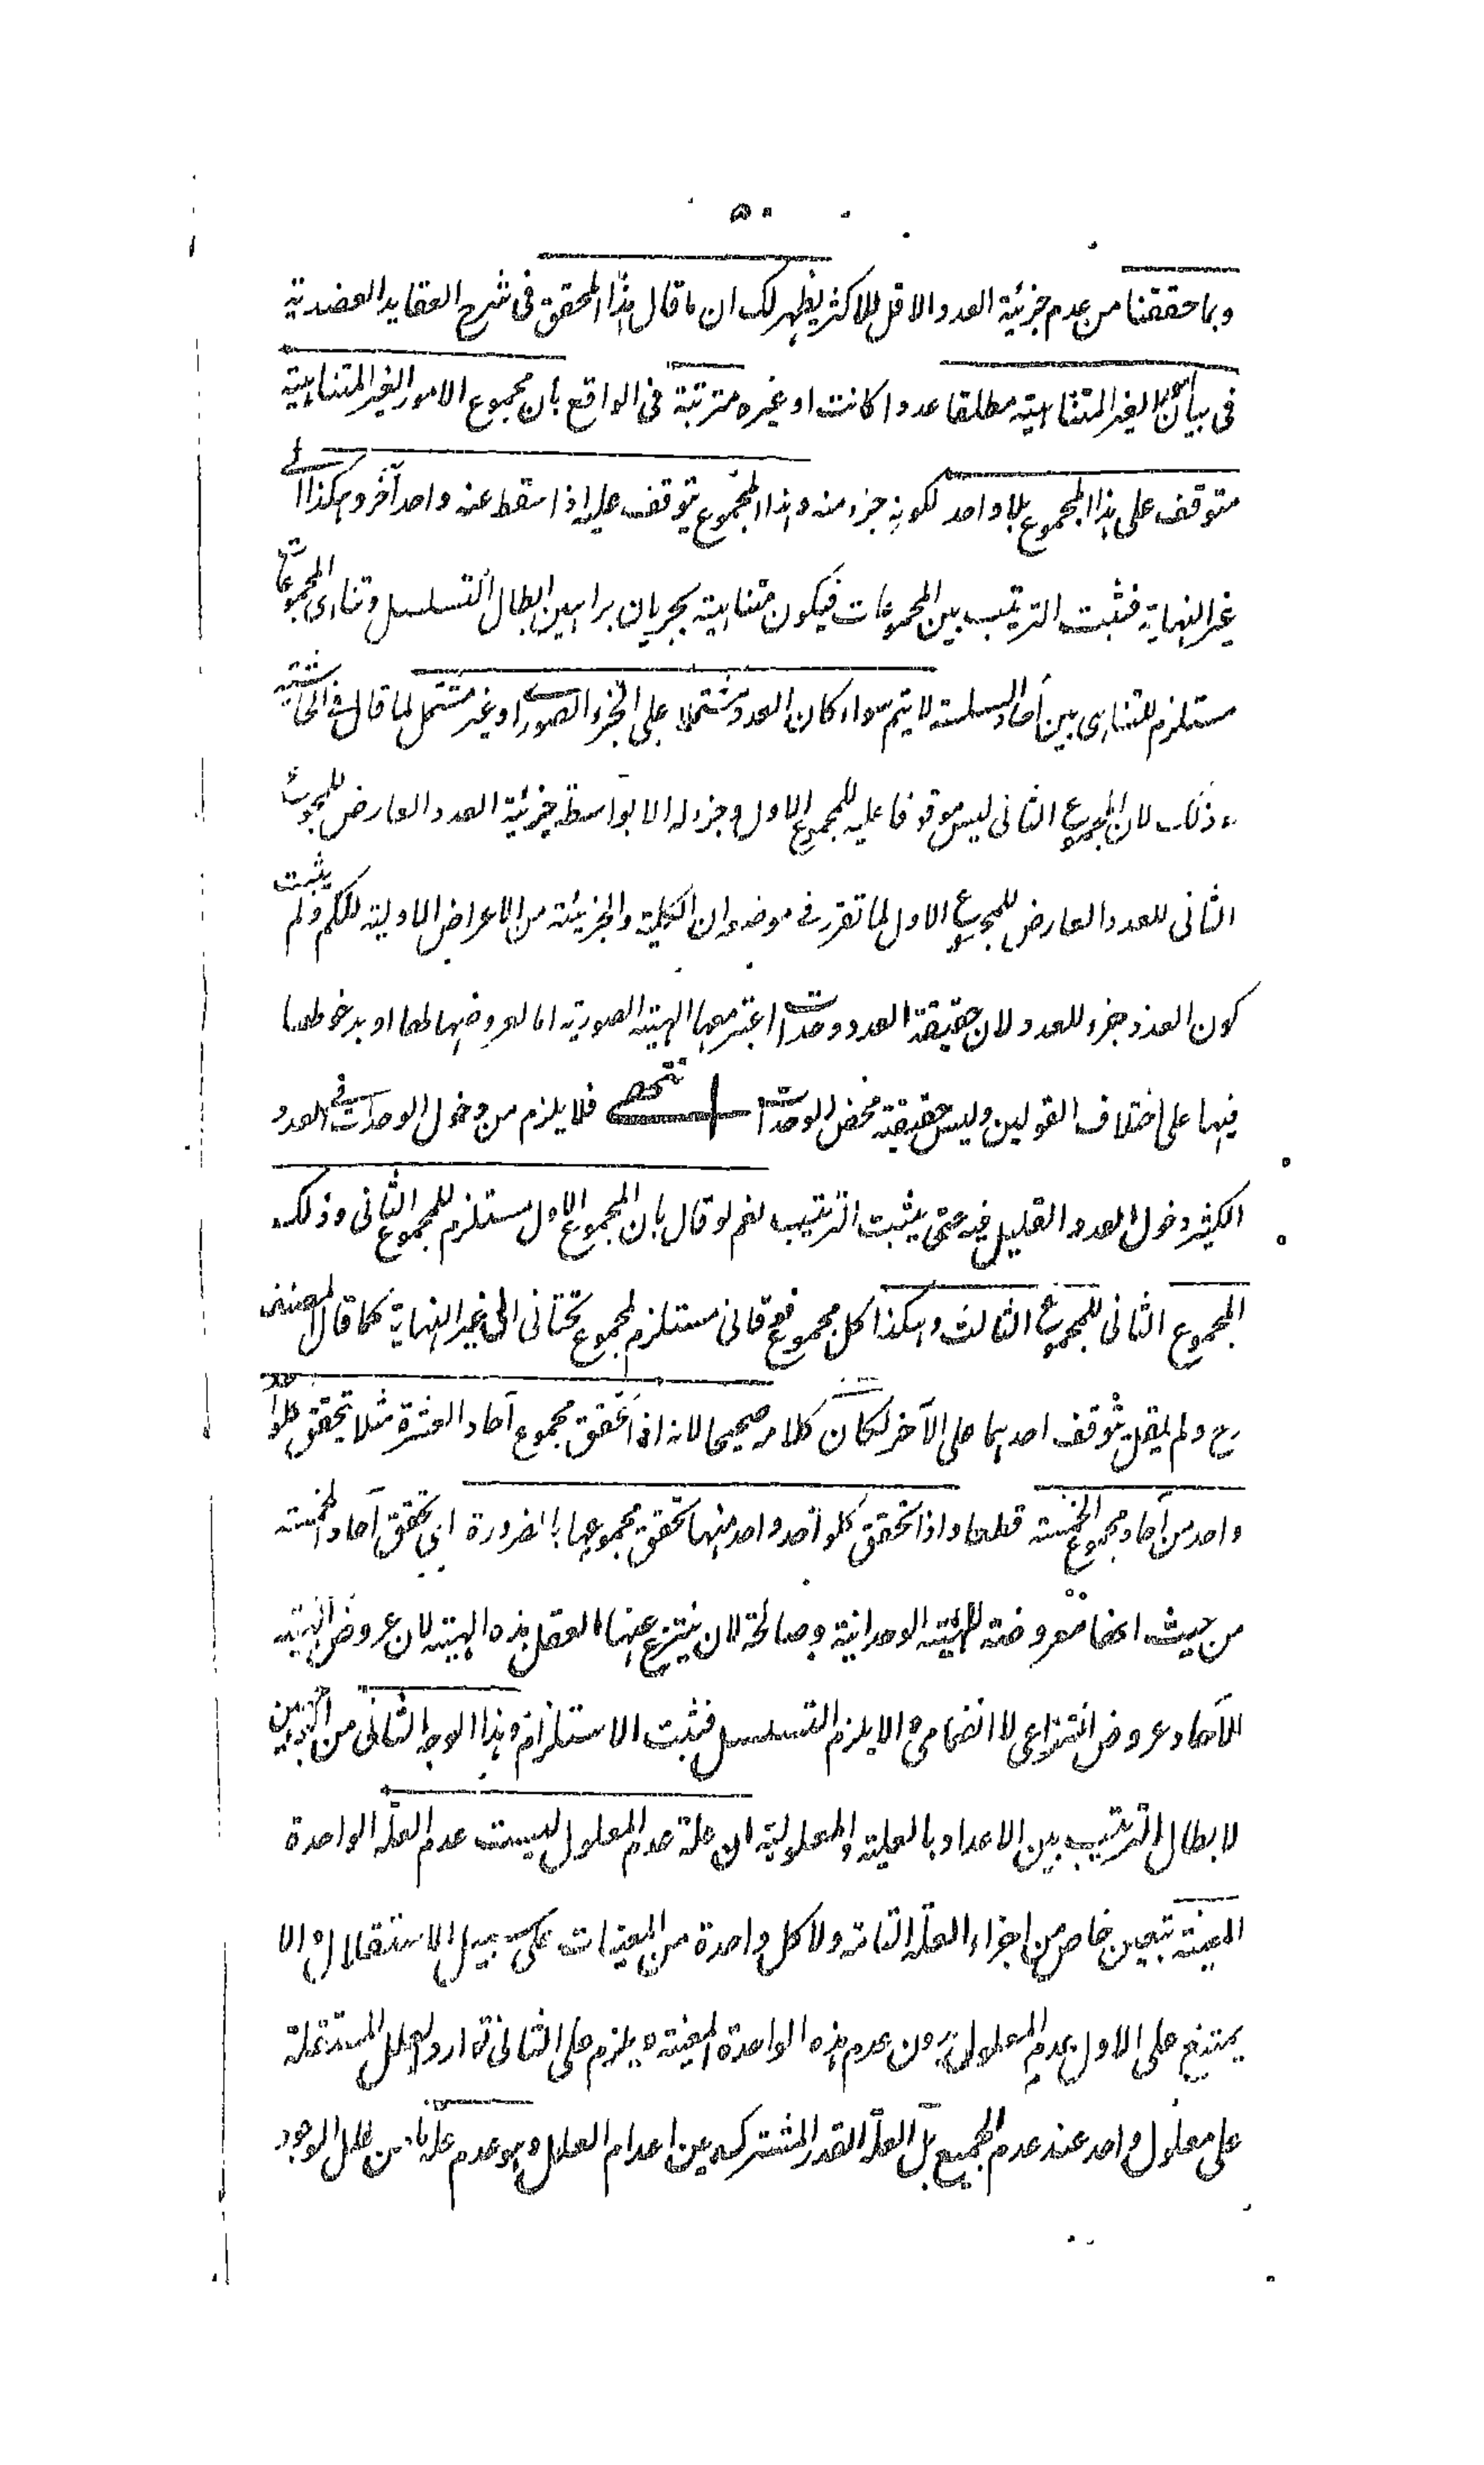 ٥٠
وبما حققنا من عدم جزئية العدد الاقل للاكثر يظهر لك ان ما قال هذا المحقق فى شرح العقايد العضدية
فى بيان الامور الغير المتناهية مطلقا عددا كانت او غيره مترتبة فى الواقع بان مجموع الامور الغير المتناهية
متوقف على هذا المجموع بلا واحد لكونه جزء منه وهذا المجموع يتوقف عليه اذا سقط عنه واحد آخر وهكذا الى
غير النهاية فثبت الترتيب بين المجموعات فيكون متناهية بجريان براهين ابطال التسلسل وتناهى المجموعات
مستلزم للتناهى بين آحاد السلسلة لا يتم سواء كان العدد مشتملا على الجزء الصورى او غير مشتمل لما قال فى الحاشية
وذلك لان المجموع الثانى ليس موقوفا عليه للمجموع الاول وجزء له الا بواسطة جزئية العدد العارض للمجموع
الثانى للعدد العارض للمجموع الاول لما تقرر فى موضعه ان الكلية والجزئية من الاعراض الاولية للكم ولم يثبت
كون العدد جزء للعدد لان حقيقة العدد وحدات اعتبر معها الهيئة الصورية اما لعروضها لها او بدخولها
فيها على اختلاف القولين وليس حقيقة محض الوحدات انتهى فلا يلزم من دخول الوحدات فى العدد
الكثير دخول العدد القليل فيه حتى يثبت الترتيب نعم لو قال بان المجموع الاول مستلزم للمجموع الثانى وذلك
المجموع الثانى للمجموع الثالث وهكذا كل مجموع فوقانى مستلزم لمجموع تحتانى الى غير النهاية كما قال المصنف
رح ولم يقل بتوقف احدهما على الآخر لكان كلامه صحيحا لانه اذا تحقق مجموع آحاد العشرة مثلا يتحقق كل واحد
واحد من آحاد مجموع الخمسة قطعا واذا تحقق كل واحد واحد منها تحقق مجموعها بالضرورة اى تحقق آحاد الخمسة
من حيث انها معروضة للهيئة الوحدانية وصالحة لان ينتزع عنها العقل هذه الهيئة لان عروض الهيئة
للآحاد عروض انتزاعى لا انضمامى والا يلزم التسلسل فثبت الاستلزام وهذا الوجه الثانى من الوجهين
لابطال الترتيب بين الاعداد بالعلية والمعلولية ان علة عدم المعلول ليست عدم العلة الواحدة
المعينة بتعين خاص من اجزاء العلة التامة ولا كل واحدة من المعينات على سبيل الاستقلال والا
يمتنع على الاول عدم المعلول بدون عدم هذه الواحدة المعينة ويلزم على الثانى توارد العلل المستقلة
على معلول واحد عند عدم الجميع بل العلة القدر المشترك بين اعدام العلل وهو عدم علة ما من علل الوجود